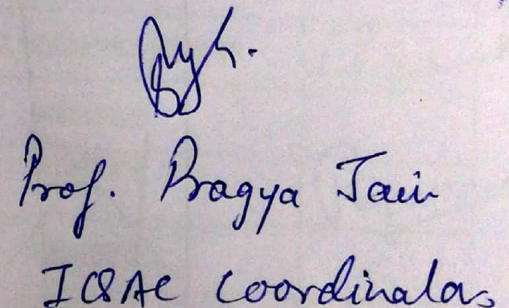 Prof. Pragya Jain
IQAC Coordinator